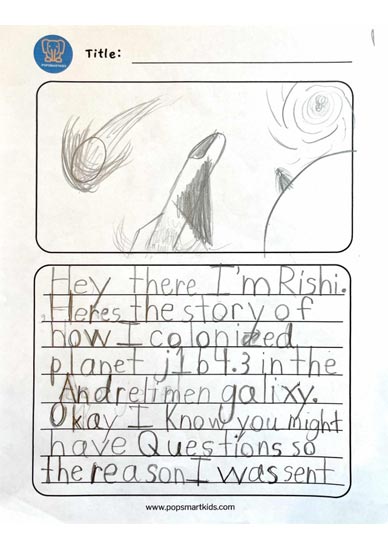 POPSMARTKIDS
Title:
Hey there I'm Rishi.
Heres the story of
how I colonized
planet j1b4.3 in the
Andrelimen galixy.
Okay I know you might
have Questions so
the reason I was sent
www.popsmartkids.com